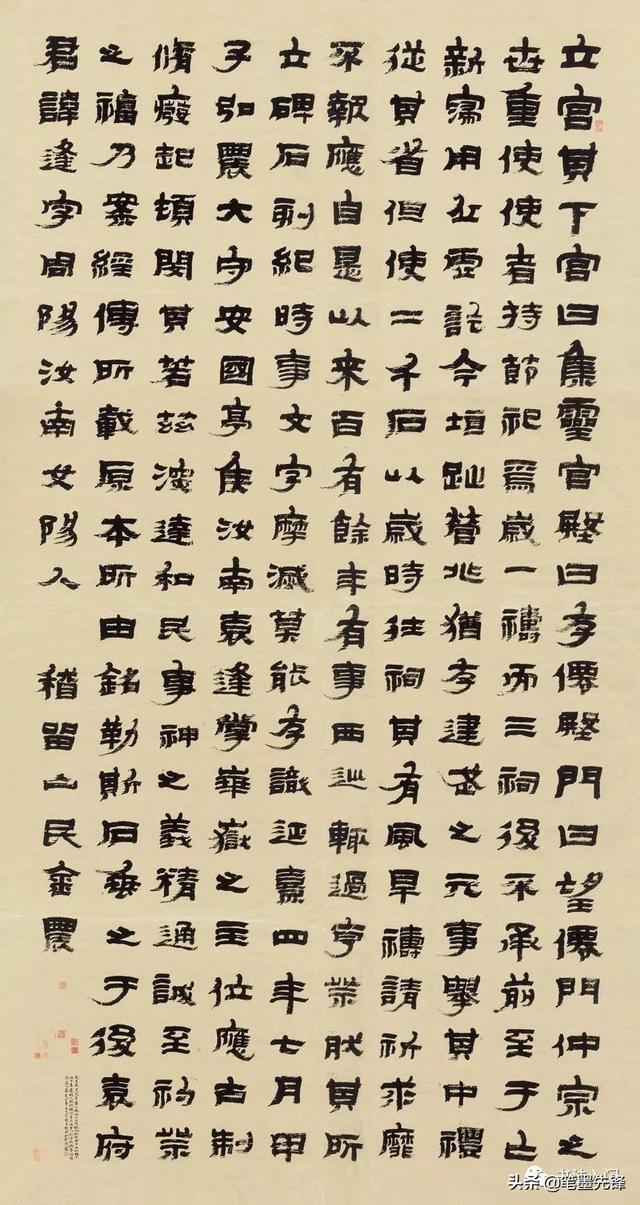 立宫其下宫曰集靈宫殿曰存僊殿門曰望僊門仲宗之
世重使使者持節祀焉歲一禱而三祠後不承前至于亡
新寖用丘虛訖今垣趾營兆猶存建武之元事舉其中禮
從其省但使二千石以歲時往祠其有風旱禱請祈求靡
不報應自是以來百有餘年有事西巡輒過亨祭然其所
立碑石刻紀時事文字摩滅莫能存識延熹四年七月甲
子弘農大守安國亭侯汝南袁逢掌華嶽之主位應古制
脩癈起頓閔其若茲深達和民事神之義精通誠至礿祭
之福乃案經傳所載原本所由銘勒斯石垂之于後袁府
君諱逢字周陽汝南女陽人 稽留山民金農
头条 @笔墨先锋